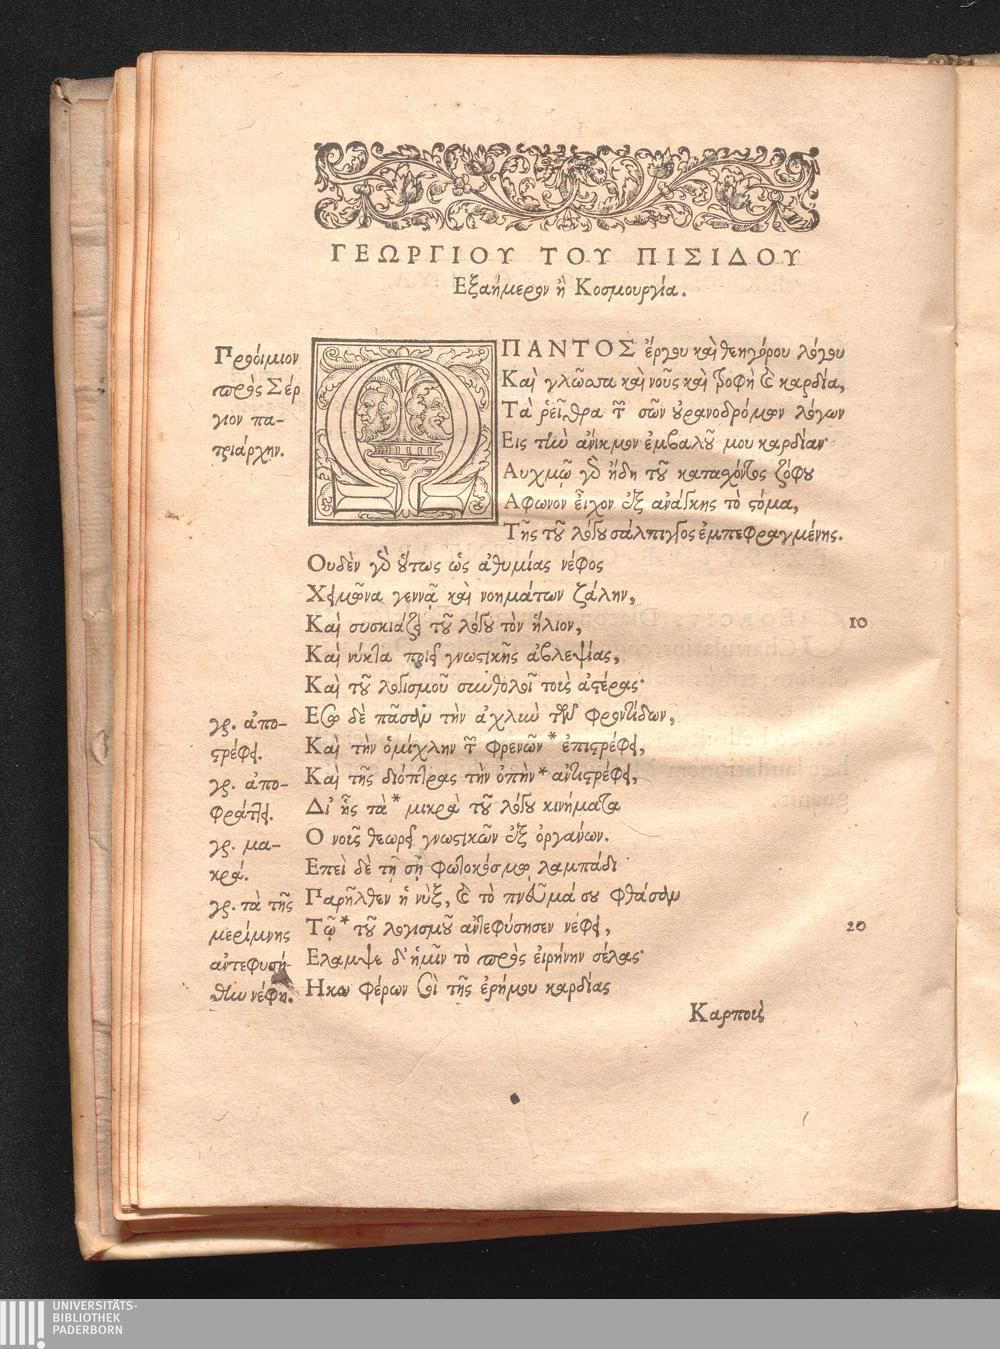 ΓΕΩΡΓΙΟΥ ΤΟΥ ΠΙΣΙΔΟΥ
Εξαήμερον ἢ Κοσμουργία.
Προοίμιον
πρὸς Σέρ
γιον πα-
τριάρχην.
Ω ΠΑΝΤΟΣ ἔργου καὶ θεηγόρου λόγου
Καὶ γλῶσσα καὶ νοῦς καὶ τροφὴ καὶ καρδία,
Τὰ ῥεῖθρα τῶν σῶν οὐρανοδρόμων λόγων
Εις τὴν ἄνικμον ἐμβαλοῦ μου καρδίαν·
Αυχμῷ γὰρ ἤδη τοῦ κατασχόντος ζόφου
Αφωνον εἶχον ἐξ ἀνάγκης τὸ στόμα,
Τῆς τοῦ λόγου σάλπιγγος ἐμπεφραγμένης.
Ουδὲν γὰρ οὕτως ὡς ἀθυμίας νέφος
Χειμῶνα γεννᾷ καὶ νοημάτων ζάλην,
Καὶ συσκιάζει τοῦ λόγου τὸν ἥλιον, 10
Καὶ νύκτα ποιεῖ γνωστικῆς ἀβλεψίας,
Καὶ τοῦ λογισμοῦ συνθολοῖ τοὺς ἀστέρας·
Εσω δὲ πᾶσαν τὴν ἀχλὺν τῶν φροντίδων,
γρ. ἀπο-
στρέφει.
Καὶ τὴν ὁμίχλην τῶν φρενῶν * ἐπιστρέφει,
γρ. ἀπο-
φράττει.
Καὶ τῆς διόπτρας τὴν ὀπὴν * ἀντιστρέφει,
Δι᾽ ἧς τὰ * μικρὰ τοῦ λόγου κινήματα
γρ. μα-
κρά.
Ο νοῦς θεωρεῖ γνωστικῶν ἐξ ὀργάνων.
Επεὶ δὲ τῇ σῇ φωτοκόσμῳ λαμπάδι
γρ. τὰ τῆς
μερίμνης
ἀντεφυσή-
θην νέφη.
Παρῆλθεν ἡ νὺξ, καὶ τὸ πνεῦμά σου φθάσαν
Τῷ * τοῦ λογισμοῦ ἀντεφύσησεν νέφει, 20
Ελαμψε δ᾽ ἡμῖν τὸ πρὸς εἰρήνην σέλας·
Ηκω φέρων σοὶ τῆς ἐρήμου καρδίας
Καρποὺς
UNIVERSITÄTS-
BIBLIOTHEK
PADERBORN